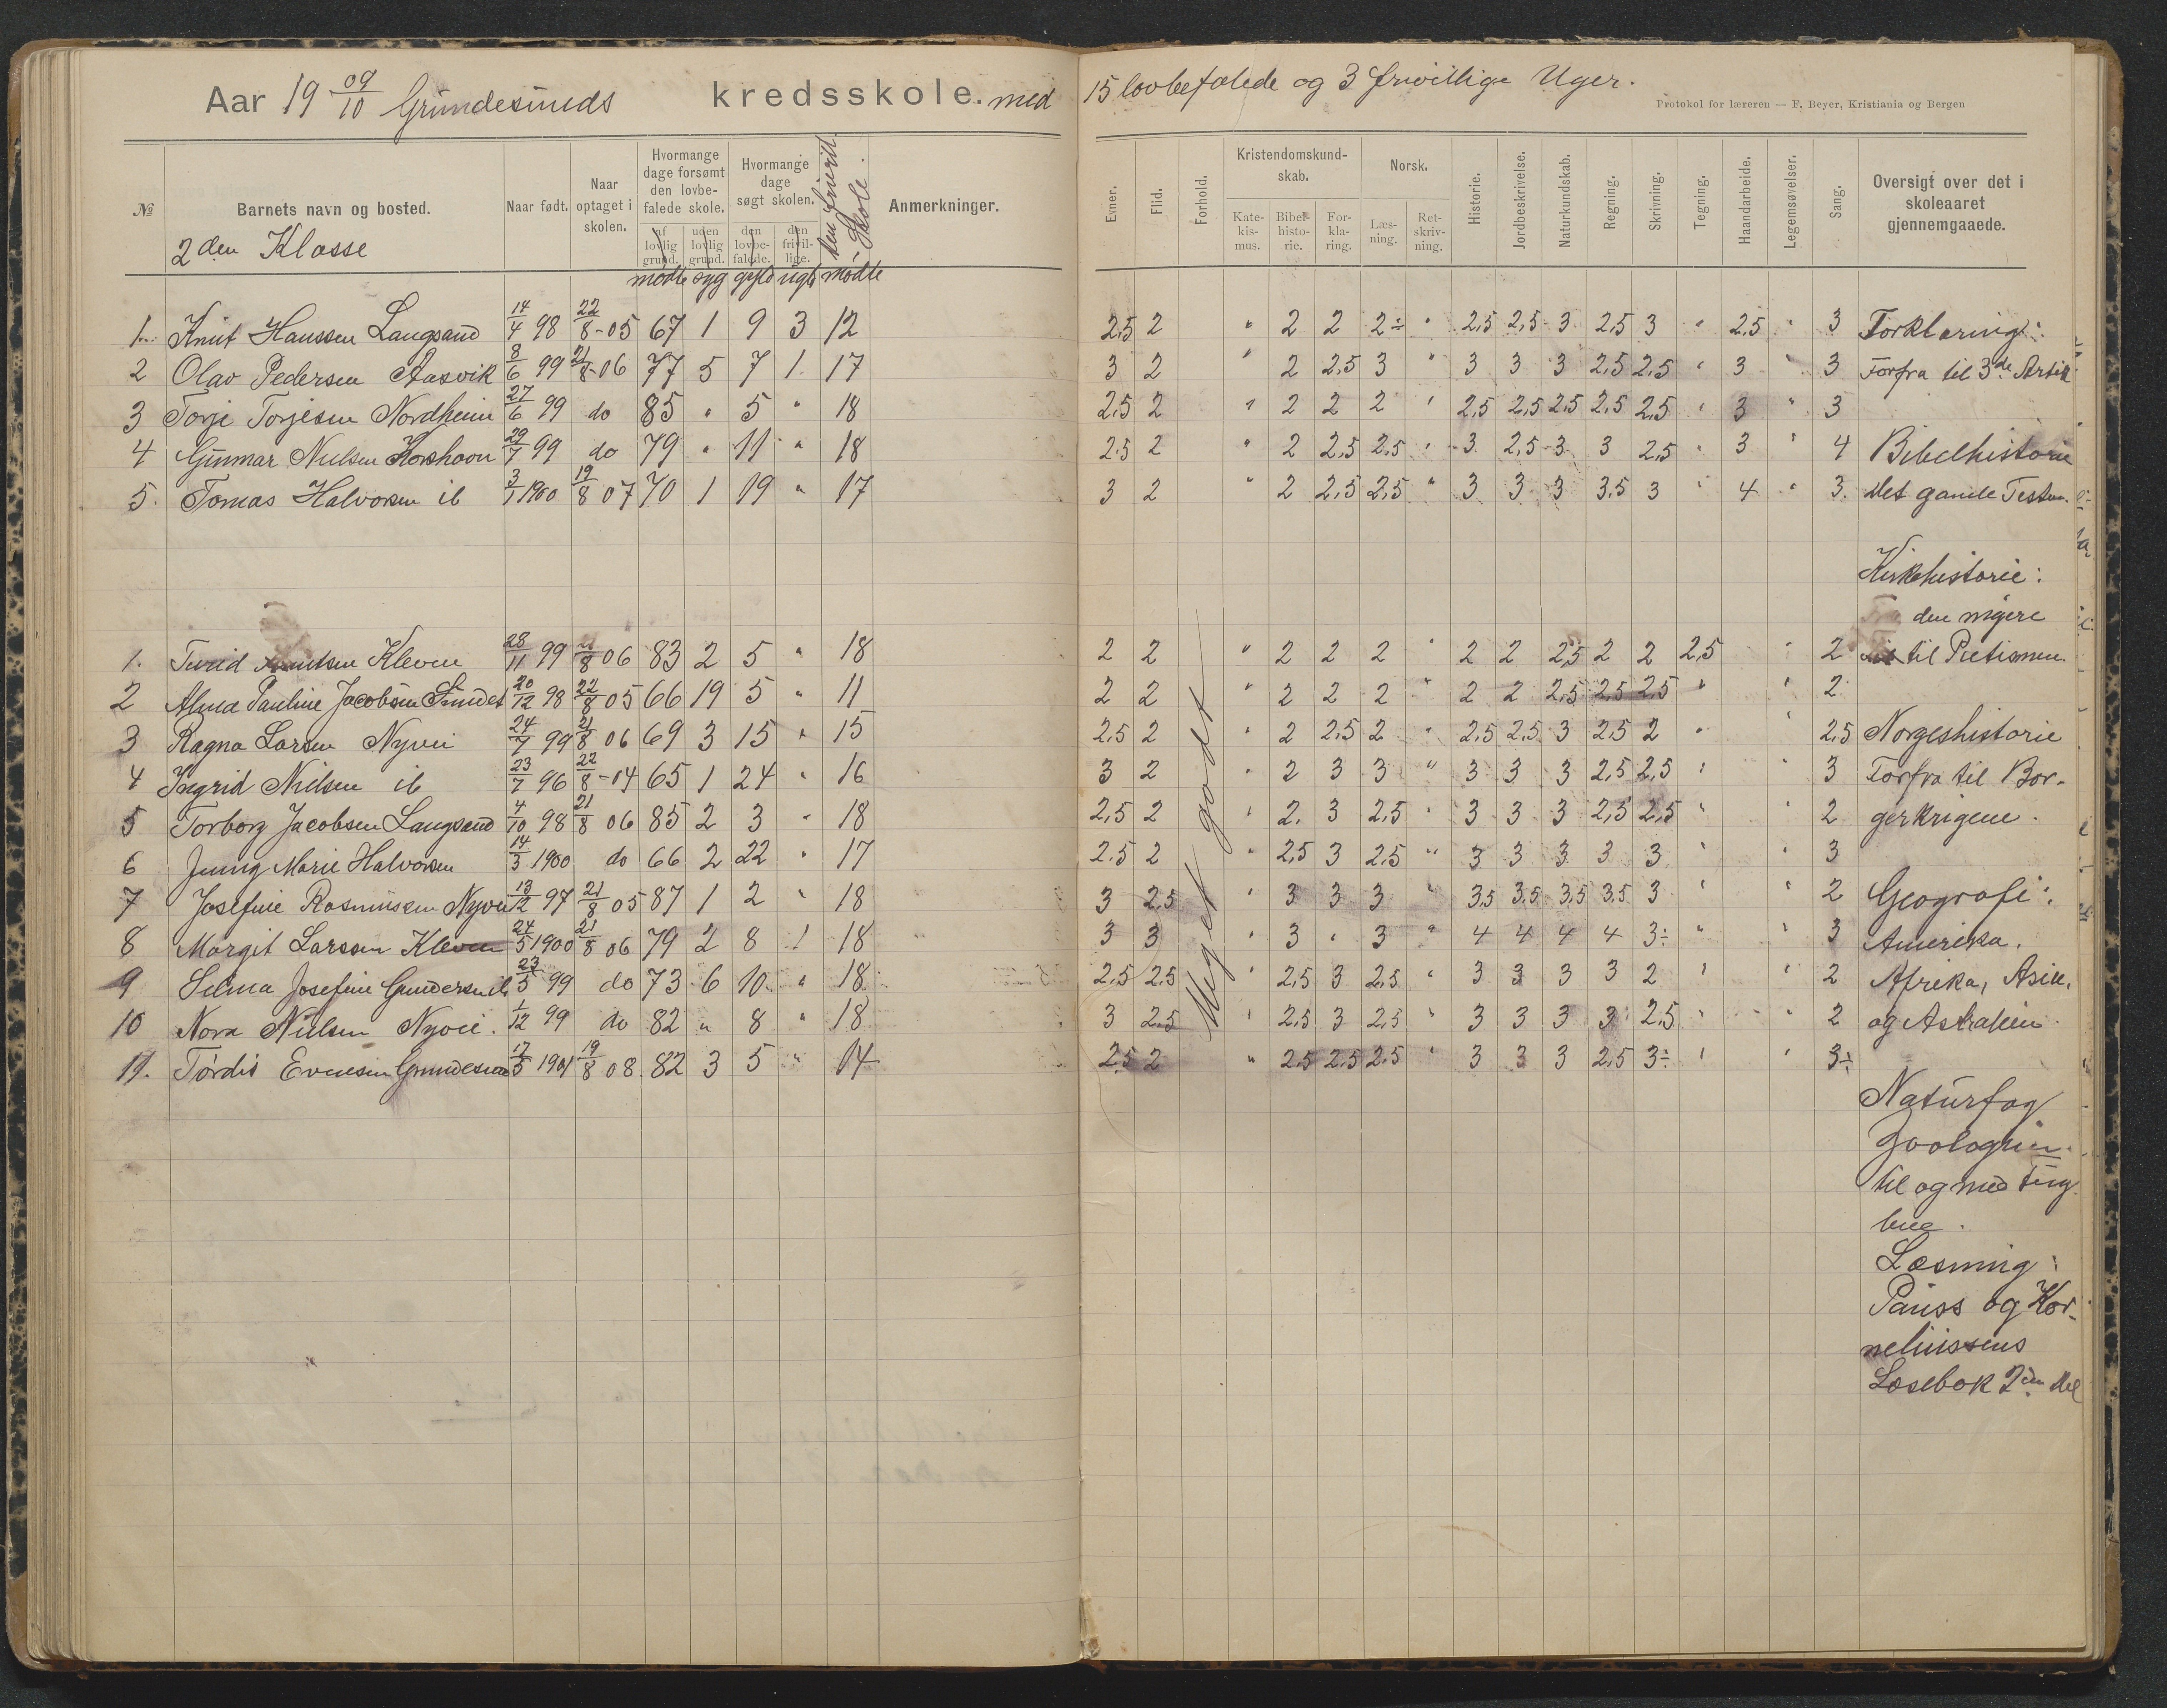 Aar 19 09/10 Grundesunds kredsskole. med 15 lovbefalede og 3 frivillige Uger.
Protokol for læreren — F. Beyer, Kristiania og Bergen
№ Barnets navn og bosted. Naar født. Naar optaget i skolen. Hvormange dage forsømt den lovbefalede skole. Hvormange dage søgt skolen. den frivill. Skole. Anmerkninger.
af lovlig grund. uden lovlig grund. den lovbefalede. den frivillige.
2den Klasse
mødte syg gyld ugld mødte
Evner. Flid. Forhold. Kristendomskundskab. Norsk. Historie. Jordbeskrivelse. Naturkundskab. Regning. Skrivning. Tegning. Haandarbeide. Legemsøvelser. Sang. Oversigt over det i skoleaaret gjennemgaaede.
Katekismus. Bibelhistorie. Forklaring. Læsning. Retskrivning.
1. Knut Hanssen Langsand 14/4 98 22/8-05 67 1 9 3 12 2,5 2 " 2 2 2÷ " 2,5 2,5 3 2,5 3 " 2,5 " 3 Forklaring:
2 Olav Pedersen Aasvik 8/6 99 21/8-06 77 5 7 1 17 3 2 " 2 2,5 3 " 3 3 3 2,5 2,5 " 3 3 Forfra til 3de Artik
3 Torje Torjesen Nordheim 27/6 99 do 85 " 5 " 18 2,5 2 " 2 2 2 " 2,5 2,5 2,5 2,5 2,5 " 3 " 3
4 Gunnar Nielsen Korshavn 29/7 99 do 79 " 11 " 18 2,5 2 " 2 2,5 2,5 " 3 2,5 3 3 2,5 " 3 " 4 Bibelhistorie
5. Tomas Halvorsen ib 3/1 1900 19/8 07 70 1 19 " 17 3 2 " 2 2,5 2,5 " 3 3 3 3,5 3 " 4 " 3. Det gamle Testm.
Kirkehistorie:
den nyere
1. Turid Kleven 28/11 99 21/8 06 83 2 5 " 18 2 2 " 2 2 2 " 2 2 2,5 2 2 2,5 " 2 til Pietismen
2 Alma Pauline Jacobsen 20/12 98 22/8 05 66 19 5 " 11 2 2 " 2 2 2 " 2 2 2,5 2,5 2,5 " " 2
3 Ragna Larsen Nyvei 24/7 99 21/8 06 69 3 15 " 15 2,5 2 " 2 2,5 2 " 2,5 2,5 3 2,5 2 " " 2,5 Norgeshistorie
4 Ingrid Nielsen ib 23/7 96 22/8-04 65 1 24 " 16 3 2 " 2 3 3 " 3 3 3 2,5 2,5 " " 3 Forfra til Bor-
5 Torborg Jacobsen Langsand 4/10 98 21/8 06 85 2 3 " 18 2,5 2 " 2. 3 2,5 " 3 3 3 2,5 2,5 " " 2 gerkrigene.
6 Jenny Marie Halvorsen 14/3 1900 do 66 2 22 " 17 2,5 2 " 2,5 3 2,5 " 3 3 3 3 3 " " 3
7 Josefine Rasmussen Nyvei 13/12 97 21/8 05 87 1 2 " 18 3 2,5 " 3 3 3 " 3,5 3,5 3,5 3,5 3 " " 2 Geografi:
8 Margit Larssen Kleven 24/5 1900 21/8 06 79 2 8 1 18 3 3 " 3 " 3 " 4 4 4 4 3÷ " " 3 Amerika.
9 Selma Josefine Gundersen ib 23/5 99 do 73 6 10 " 18 2,5 2,5 " 2,5 3 2,5 " 3 3 3 3 2 " " 2 Afrika, Asien,
10 Nora Nielsen Nyvei. 1/12 99 do 82 " 8 " 18 3 2,5 " 2,5 3 2,5 " 3 3 3 3 2,5 " " 2 og Astralien.
11. Tordis Evensen Grundesund 17/5 1901 19/8 08 82 3 5 " 14 2,5 2 " 2,5 2,5 2,5 " 3 3 3 2,5 3÷ " " 3÷
Meget godt
Naturfag
Zoologien
til og med
Læsning:
Pauss og Kor-
neliussens
Læsebok 2den Del